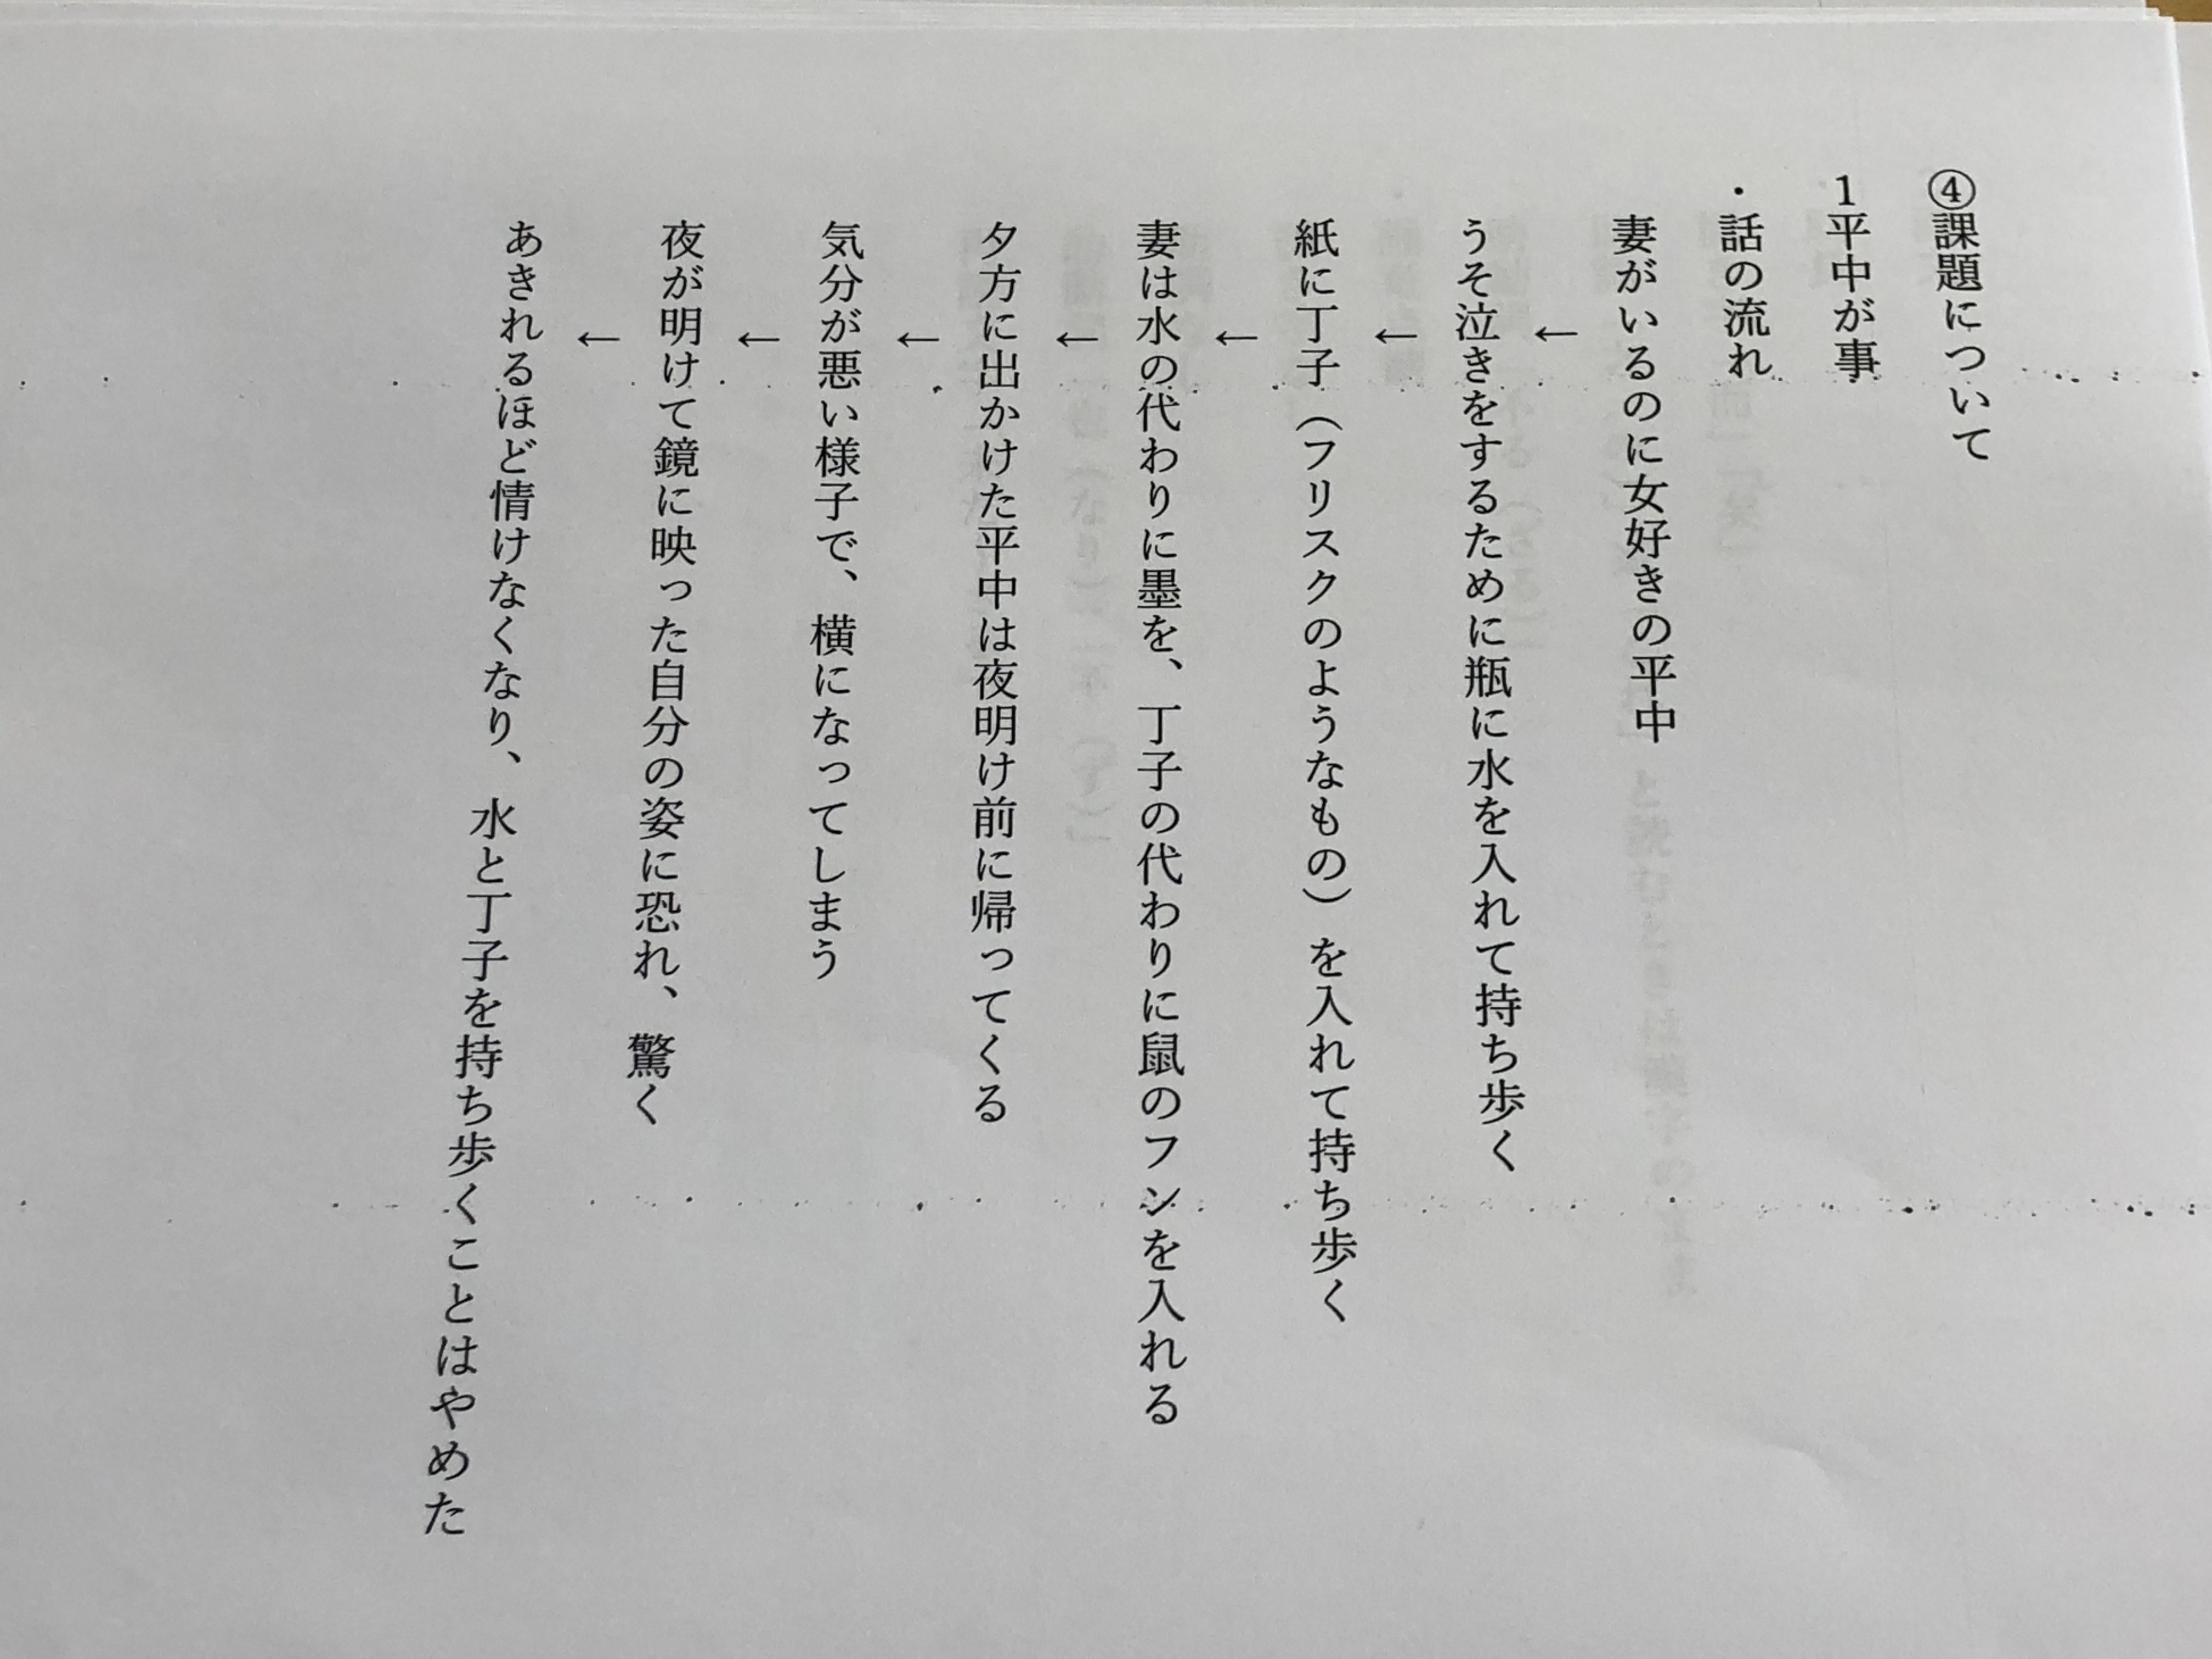 ④課題について
1平中が事
・話の流れ
妻がいるのに女好きの平中
←
うそ泣きをするために瓶に水を入れて持ち歩く
←
紙に丁子（フリスクのようなもの）を入れて持ち歩く
←
妻は水の代わりに墨を、丁子の代わりに鼠のフンを入れる
←
夕方に出かけた平中は夜明け前に帰ってくる
←
気分が悪い様子で、横になってしまう
←
夜が明けて鏡に映った自分の姿に恐れ、驚く
←
あきれるほど情けなくなり、水と丁子を持ち歩くことはやめた